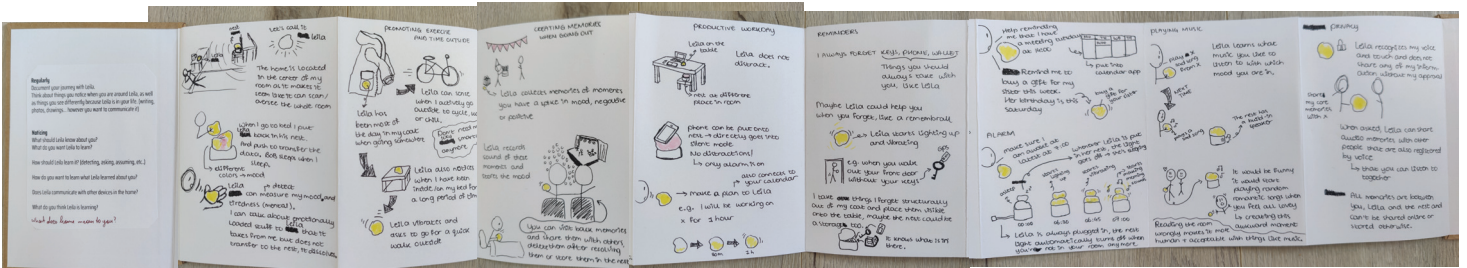 Regularly
Document your journey with Leila.
Think about things you notice when you are around Leila, as well
as things you see differently because Leila is in your life. (writing,
photos, drawings... however you want to communicate it)
Noticing
What should Leila know about you?
What do you want Leila to learn?
How should Leila learn it? (detecting, asking, assuming, etc.)
How do you want to know what Leila learned about you?
Does Leila communicate with other devices in the home?
What do you think Leila is learning?
What does home mean to you?
Let's call it
Leila
The home is located
in the center of my
room as it makes it
seem like it can scan/
oversee the whole room
when I go to bed I put
back in his nest.
And push to transfer the
data, Bob sleeps when I
sleep.
different
colors → mood
Leila
detect
can measure my mood and
tiredness (mental).
I can talk about emotionally
loaded stuff to that he
takes from me but does not
transfer to the nest, to dissolve
PROMOTING EXERCISE
AND TIME OUTSIDE
Leila has
been most of
the day in my coat
when going somewhere
Leila can sense
when I actively go
outside to cycle, walk
or chill.
Don't need my
smartwatch
anymore
Leila also notices
when I have been
inside/on my bed for
a long period of time
Leila vibrates and
asks to go for a quick
walk outside
CREATING MEMORIES
WHEN GOING OUT
Leila collects memories of moments
you have a spike in mood, negative
or positive
Leila records
sound of these
moments and
stores the mood
You can visit back memories
and share them with others,
delete them after resolving
them or store them in the nest
PRODUCTIVE WORKDAY
Leila on the
table
Leila does not
distract.
nest at different
place in room
phone can be put onto
nest → directly goes into
silent mode
No distractions!
↳ only alarm is on
also connects to
your calendar
make a plan to Leila
e.g. I will be working on
x for 1 hour
REMINDERS
I ALWAYS FORGET KEYS, PHONE, WALLET
Things you should
always take with
you, like Leila
Maybe Leila could help you
when you forget, like a rememberall
Leila starts lighting up
and vibrating
GPS
e.g. when you walk
out your front door
without your keys
I take things I forget structurally
out of my coat and place them visible
onto the table, maybe the nest could be
a storage too.
It knows what is in
there.
Help reminding
me that I have
a meeting weekend
at 14:00
put into
calendar app
Remind me to
buy a gift for my
sister this week.
Her birthday is this
Saturday
buy a
gift for
your sister
ALARM
make sure I
am awake at
latest at 9:00
whenever Leila is put
in her nest, the light
goes off → then sleeping
Leila is always plugged in, the nest
light automatically turns off when
you're not in your room anymore
PLAYING MUSIC
Leila learns what
music you like to
listen to with which
mood you are in,
NEXT
TIME
The nest has
a build-in
speaker
It would be funny
it would start
playing random
romantic songs when
you feel all lovey
↳ creating this
awkward moment
Reading the room
wrongly makes it more
human + acceptable with things like music.
PRIVACY
Leila recognises my voice
and touch and does not
share any of my inform
ation without my approval
share
my last
memories
with x
When asked, Leila can share
audio memories with other
people that are also registered
by voice.
↳ thus you can listen to
together
All memories are between
you, Leila and the nest and
can't be shared online or
stored otherwise.